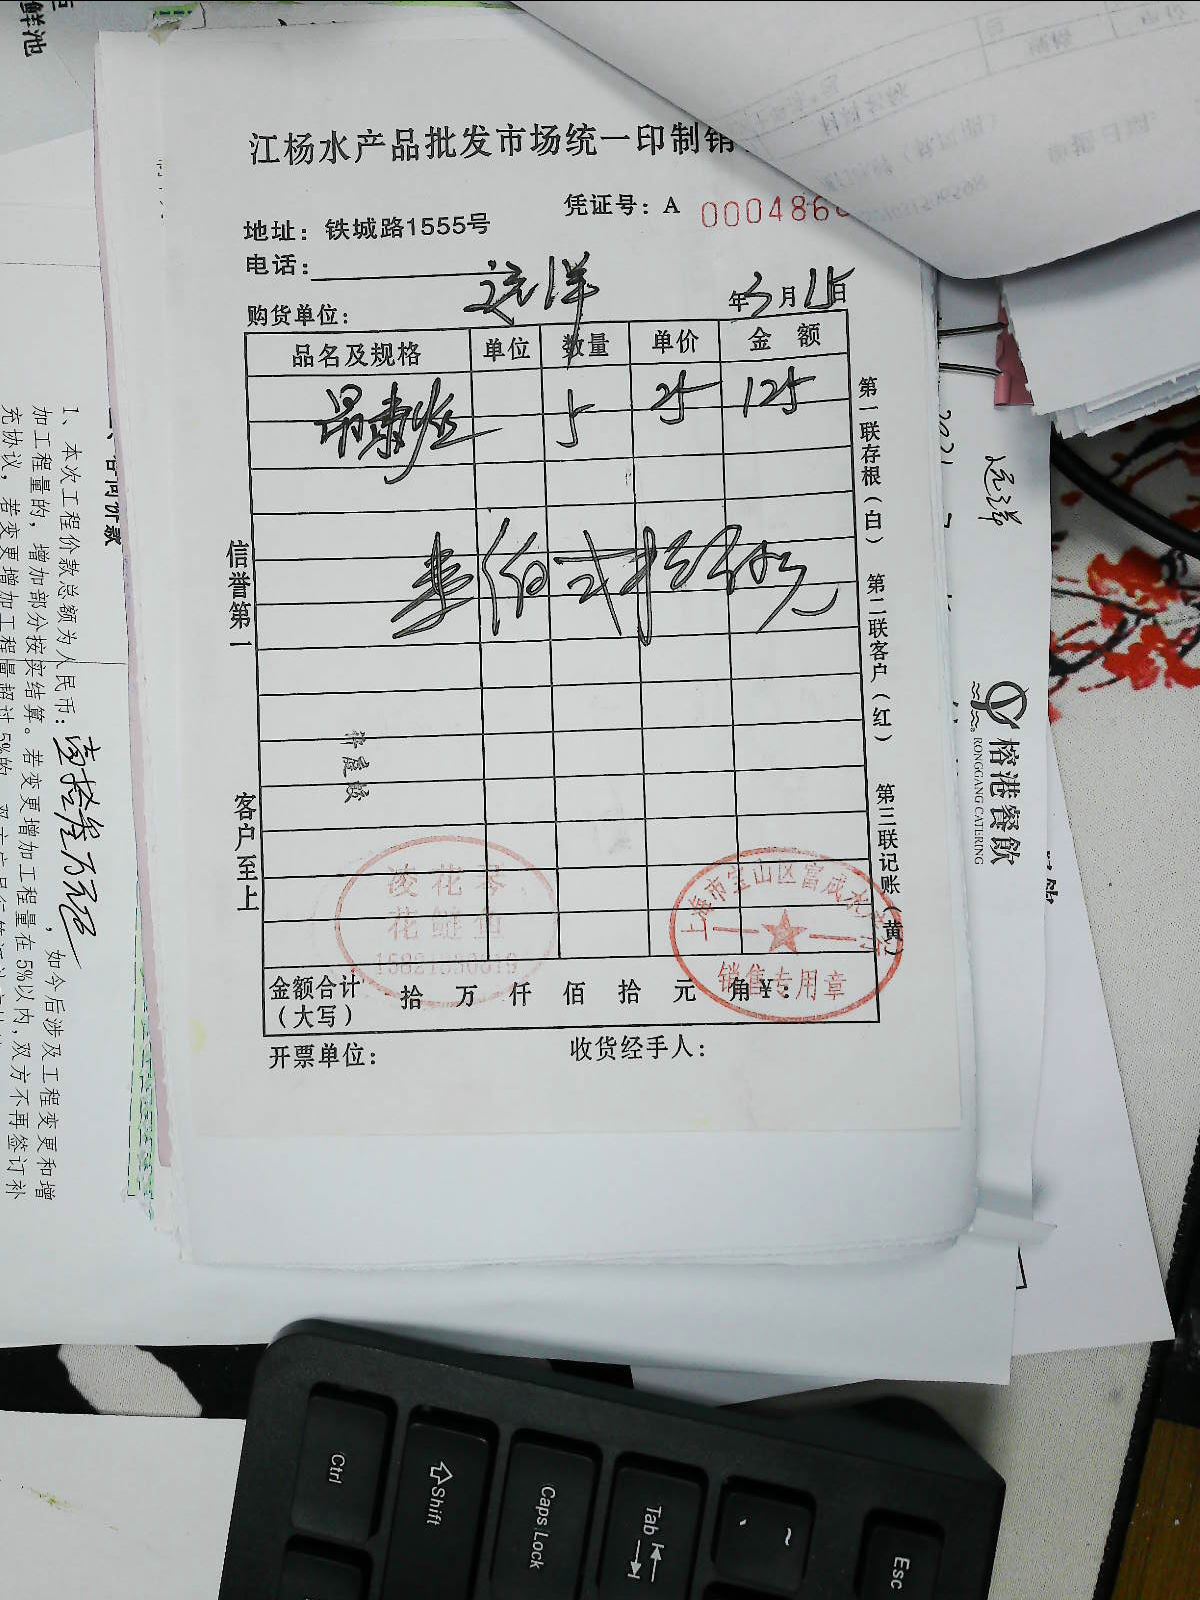 鲜池
江杨水产品批发市场统一印制销
凭证号: A 000486
地址: 铁城路1555号
电话:
购货单位: 远洋 年3月15日
品名及规格 单位 数量 单价 金额
5 25 125
壹佰弍拾伍元
信誉第一
客户至上
第一联存根(白) 第二联客户(红) 第三联记账(黄)
凌花琴
花鲢鱼
上海市宝山区富成水
销售专用章
金额合计
(大写)
拾 万 仟 佰 拾 元 角 ¥:
开票单位:
收货经手人:
合同价款
1、本次工程价款总额为人民币: 壹拾叁万元 , 如今后涉及工程变更和增
加工程量的, 增加部分按实结算。若变更增加工程量在5%以内, 双方不再签订补
充协议, 若变更增加工程量超过5%的
远洋
榕港餐飲
RONGGANG CATERING
Ctrl
Shift
Caps Lock
Tab
~
Esc